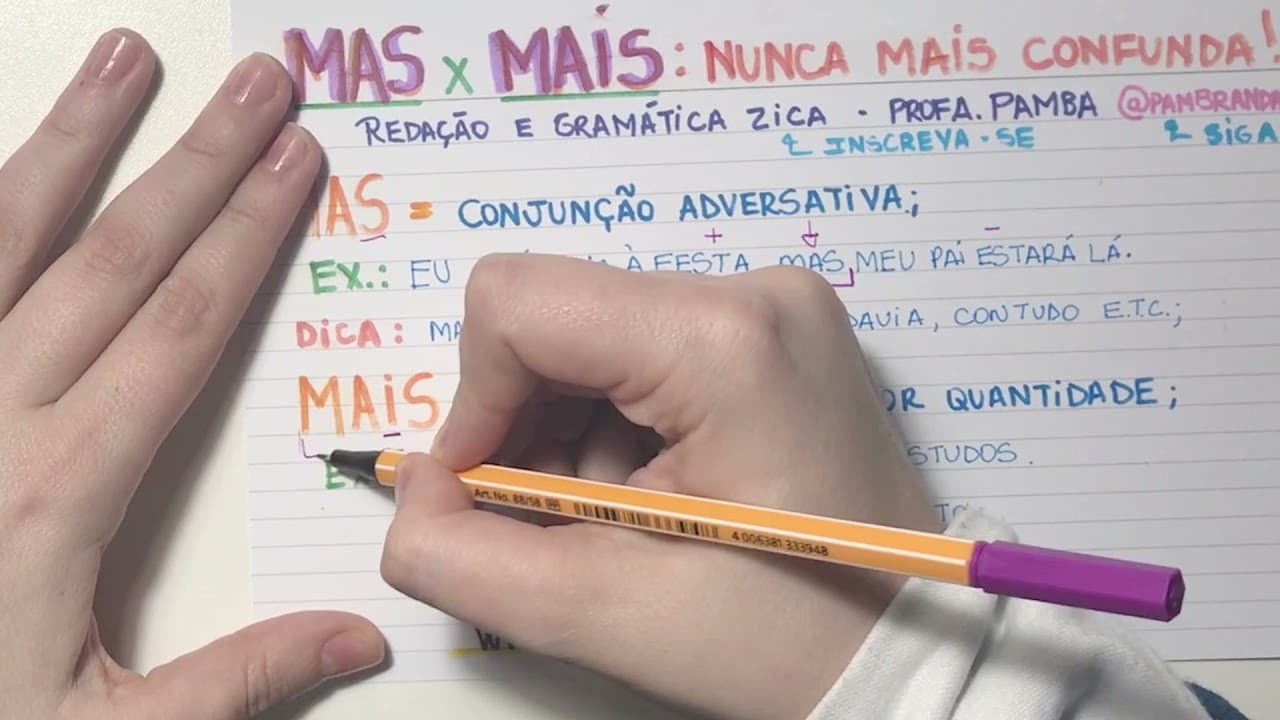 MAS x MAIS: NUNCA MAIS CONFUNDA!
REDAÇÃO E GRAMÁTICA ZICA - PROFA. PAMBA @PAMBRAND
INSCREVA-SE SIGA
MAS = CONJUNÇÃO ADVERSATIVA;
+ -
EX.: EU À FESTA MAS MEU PAI ESTARÁ LÁ.
DICA: MA DAVIA, CONTUDO E.T.C.;
MAIS OR QUANTIDADE;
STUDOS.
Art. No. 88/58 4 006381 333948
W